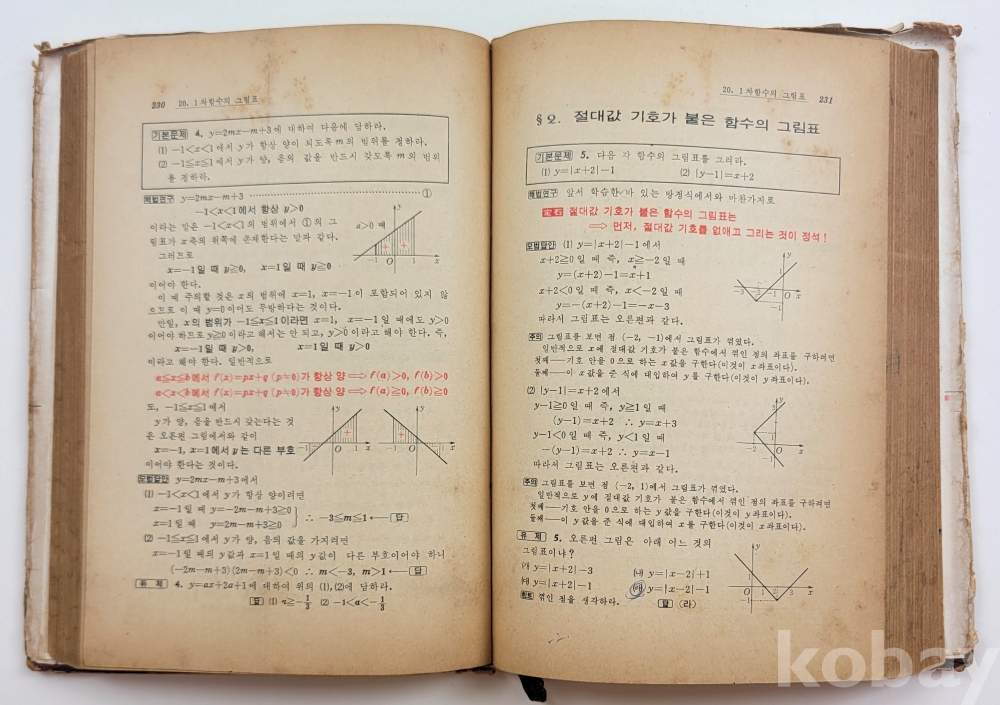 230 20. 1차함수의 그림표
기본문제 4. y=2mx-m+3에 대하여 다음에 답하라.
(1) -1<x<1에서 y가 항상 양이 되도록 m의 범위를 정하라.
(2) -1≦x≦1에서 y가 양, 음의 값을 반드시 갖도록 m의 범위
를 정하라.
해법연구 y=2mx-m+3 ①
-1<x<1에서 항상 y>0
이라는 말은 -1<x<1의 범위에서 ①의 그
림표가 x축의 위쪽에 존재한다는 말과 같다.
그러므로
x=-1일 때 y≧0, x=1일 때 y≧0
이어야 한다.
이 때 주의할 것은 x의 범위에 x=1, x=-1이 포함되어 있지 않
으므로 이 때 y=0이어도 무방하다는 것이다.
만일, x의 범위가 -1≦x≦1이라면 x=1, x=-1일 때에도 y>0
이어야 하므로 y≧0이라고 해서는 안 되고, y>0이라고 해야 한다. 즉,
x=-1일 때 y>0, x=1일 때 y>0
이라고 해야 한다. 일반적으로
a≦x≦b에서 f(x)=px+q (p≠0)가 항상 양 ⟹ f(a)>0, f(b)>0
a<x<b에서 f(x)=px+q (p≠0)가 항상 양 ⟹ f(a)≧0, f(b)≧0
도, -1≦x≦1에서
y가 양, 음을 반드시 갖는다는 것
은 오른편 그림에서와 같이
x=-1, x=1에서 y는 다른 부호
이어야 한다는 것이다.
모범답안 y=2mx-m+3에서
(1) -1<x<1에서 y가 항상 양이려면
x=-1일 때 y=-2m-m+3≧0
x=1일 때 y=2m-m+3≧0
∴ -3≦m≦1 ← 답
(2) -1≦x≦1에서 y가 양, 음의 값을 가지려면
x=-1일 때의 y값과 x=1일 때의 y값이 다른 부호이어야 하니
(-2m-m+3)(2m-m+3)<0 ∴ m<-3, m>1 ← 답
유제 4. y=ax+2a+1에 대하여 위의 (1),(2)에 답하라.
답 (1) a≧-1/3 (2) -1<a<-1/3
a>0 때
y
-1 O 1 x
y
-1 1 x
y
-1 1 x
20. 1차함수의 그림표 231
§2. 절대값 기호가 붙은 함수의 그림표
기본문제 5. 다음 각 함수의 그림표를 그려라.
(1) y=|x+2|-1 (2) |y-1|=x+2
해법연구 앞서 학습한 바 있는 방정식에서와 마찬가지로
定石 절대값 기호가 붙은 함수의 그림표는
⟹ 먼저, 절대값 기호를 없애고 그리는 것이 정석!
모범답안 (1) y=|x+2|-1에서
x+2≧0일 때 즉, x≧-2일 때
y=(x+2)-1=x+1
x+2<0일 때 즉, x<-2일 때
y=-(x+2)-1=-x-3
따라서 그림표는 오른편과 같다.
주의 그림표를 보면 점 (-2, -1)에서 그림표가 꺾였다.
일반적으로 x에 절대값 기호가 붙은 함수에서 꺾인 점의 좌표를 구하려면
첫째──기호 안을 0으로 하는 x값을 구한다(이것이 x좌표이다).
둘째──이 x값을 준 식에 대입하여 y를 구한다(이것이 y좌표이다).
(2) |y-1|=x+2에서
y-1≧0일 때 즉, y≧1일 때
(y-1)=x+2 ∴ y=x+3
y-1<0일 때 즉, y<1일 때
-(y-1)=x+2 ∴ y=-x-1
따라서 그림표는 오른편과 같다.
주의 그림표를 보면 점 (-2, 1)에서 그림표가 꺾였다.
일반적으로 y에 절대값 기호가 붙은 함수에서 꺾인 점의 좌표를 구하려면
첫째──기호 안을 0으로 하는 y값을 구한다(이것이 y좌표이다).
둘째──이 y값을 준 식에 대입하여 x를 구한다(이것이 x좌표이다).
유제 5. 오른편 그림은 아래 어느 것의
그림표이냐?
(가) y=|x+2|-3 (나) y=|x-2|+1
(다) y=|x+2|-1 (라) y=|x-2|-1
힌트 꺾인 점을 생각하라. 답 (라)
y
-3 -2 O x
-1
y
1
-2 O x
-1
y
O 1 2 3 x
-1
kobay